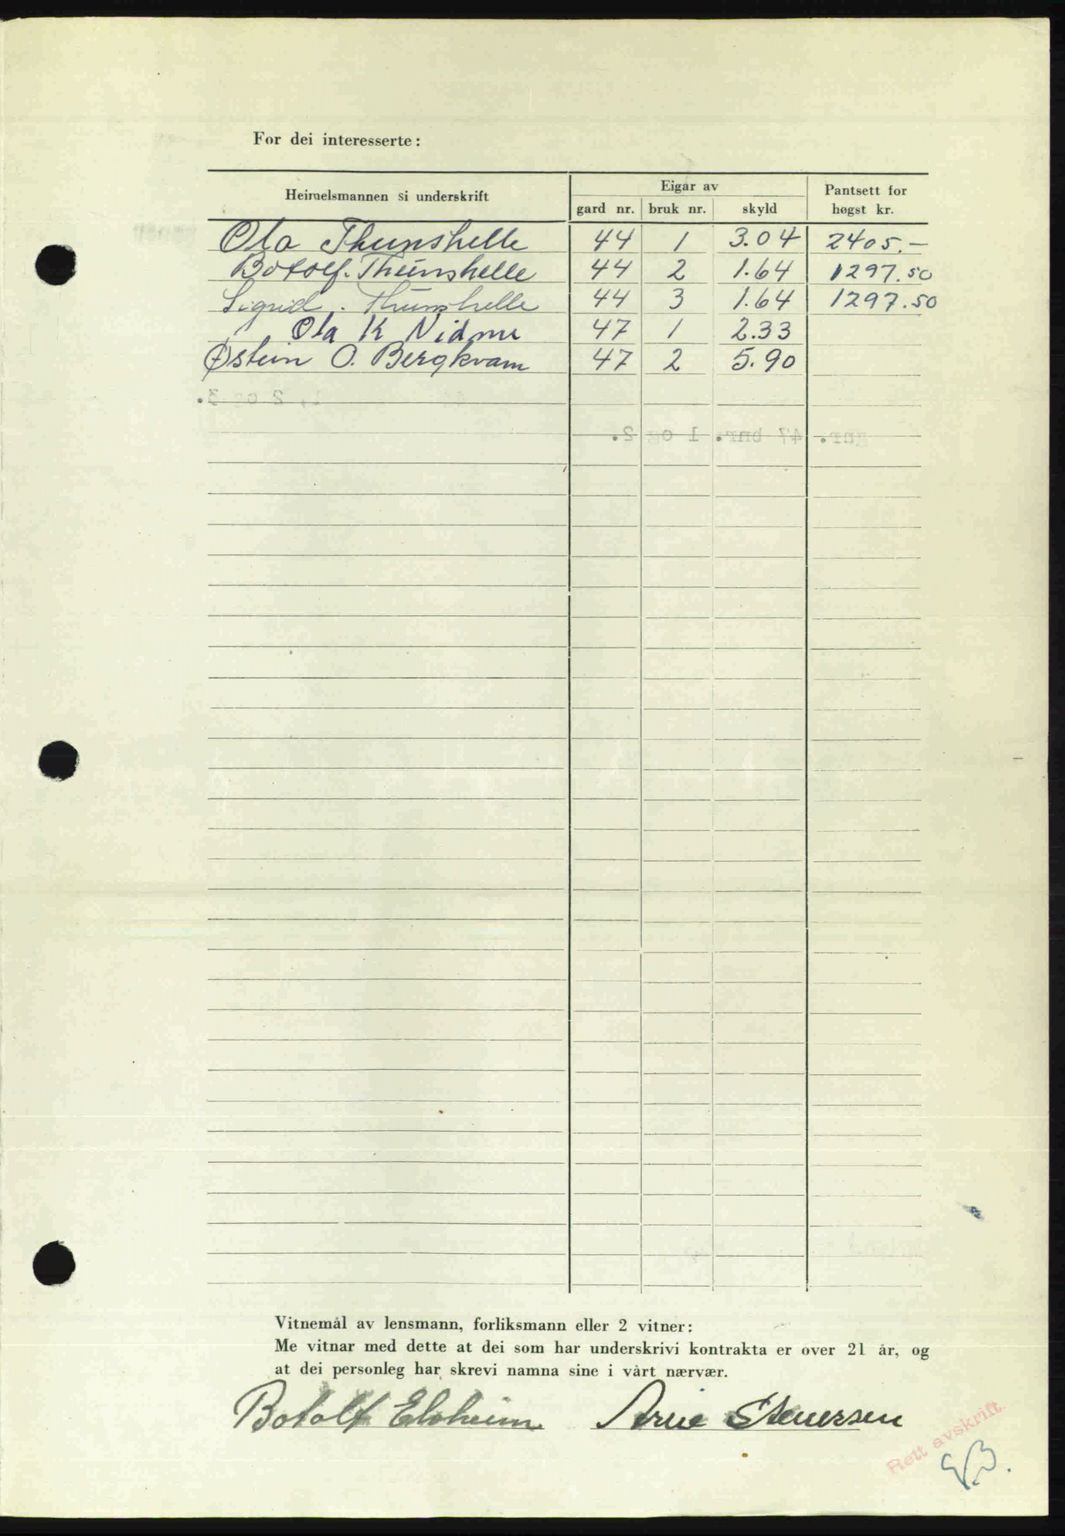 For dei interesserte:
Heimelsmannen si underskrift | Eigar av | Pantsett for høgst kr.
gard nr. | bruk nr. | skyld
Ola Thunshelle 44 1 3.04 2405.-
Botolf. Thunshelle 44 2 1.64 1297.50
Sigrid. Thunshelle 44 3 1.64 1297.50
Ola K 47 1 2.33
Østein O. Bergkvam 47 2 5.90
Vitnemål av lensmann, forliksmann eller 2 vitner:
Me vitnar med dette at dei som har underskrivi kontrakta er over 21 år, og
at dei personleg har skrevi namna sine i vårt nærvær.
Botolf Elvheim Arne Steuersen
Rett avskrift